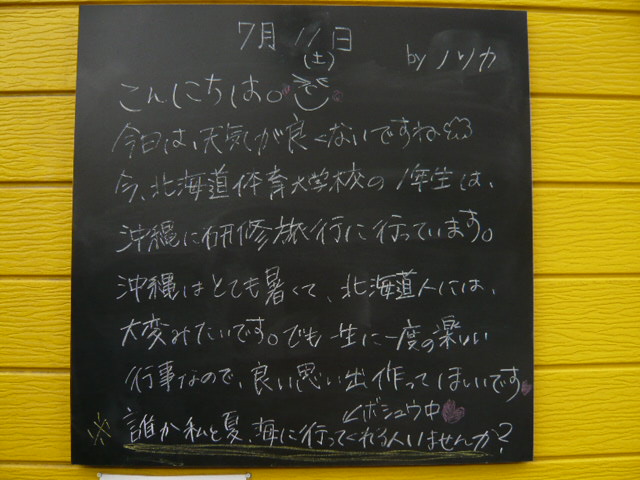 7月11日
(土)
by ノリカ
こんにちは。
今日は、天気が良くないですね
今、北海道体育大学校の1年生は、
沖縄に研修旅行に行っています。
沖縄はとても暑くて、北海道人には、
大変みたいです。でも一生に一度の楽しい
行事なので、良い思い出作ってほしいです
↙ボシュウ中
※誰か私と夏、海に行ってくれる人いませんか?